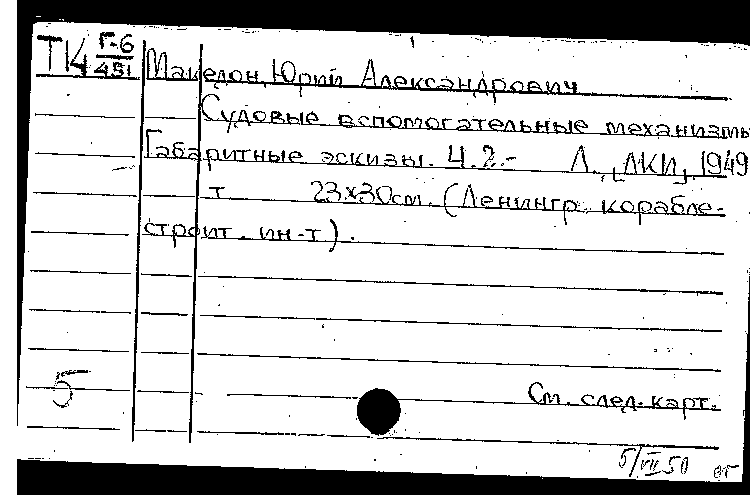 Т14 Г-6/451 Македон, Юрий Александрович
Судовые вспомогательные механизмы
Габаритные эскизы. Ч.2.- Л., [ЛКИ], 1949
т 23х30см. (Ленингр. корабле-
строит. ин-т).
5 См. след. карт.
5/VII 50